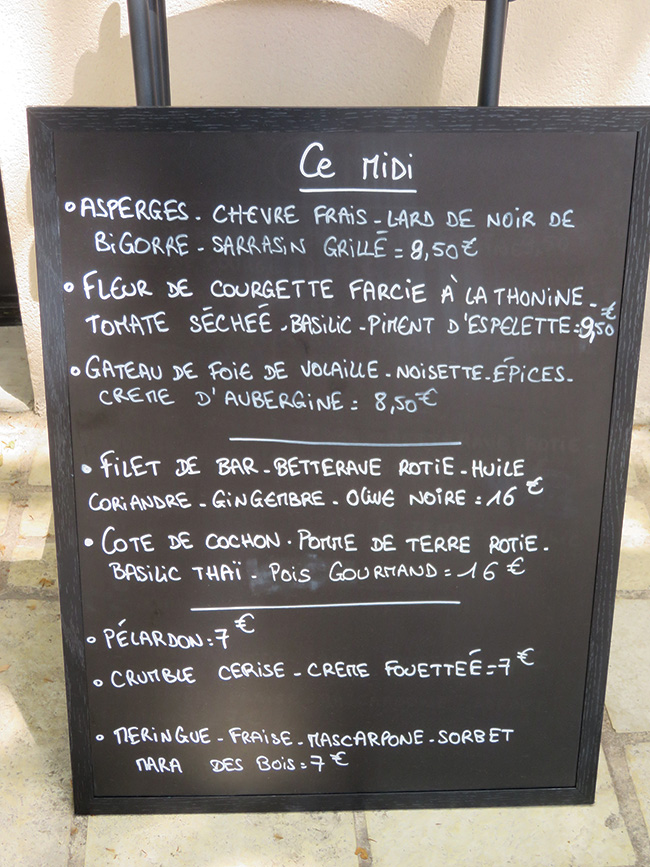 Ce MIDI
• ASPERGES - CHEVRE FRAIS - LARD DE NOIR DE
BIGORRE - SARRASIN GRILLÉ = 9,50€
• FLEUR DE COURGETTE FARCIE À LA THONINE -
TOMATE SÉCHÉE - BASILIC - PIMENT D'ESPELETTE = 9,50 €
• GATEAU DE FOIE DE VOLAILLE - NOISETTE - ÉPICES -
CREME D'AUBERGINE = 8,50€
• FILET DE BAR - BETTERAVE ROTIE - HUILE
CORIANDRE - GINGEMBRE - OLIVE NOIRE = 16 €
• COTE DE COCHON - POMME DE TERRE ROTIE -
BASILIC THAÏ - POIS GOURMAND = 16 €
• PÉLARDON = 7 €
• CRUMBLE CERISE - CREME FOUETTEÉ = 7 €
• MERINGUE - FRAISE - MASCARPONE - SORBET
MARA DES BOIS = 7 €